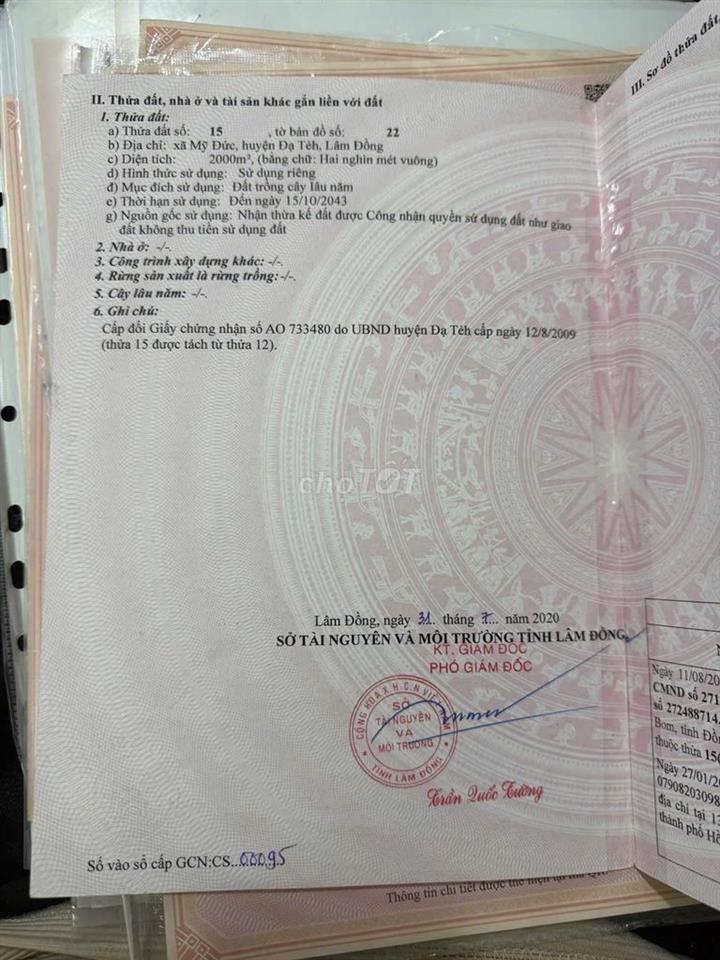 II. Thửa đất, nhà ở và tài sản khác gắn liền với đất
1. Thửa đất:
a) Thửa đất số: 15 , tờ bản đồ số: 22
b) Địa chỉ: xã Mỹ Đức, huyện Đạ Tẻh, Lâm Đồng
c) Diện tích: 2000m², (bằng chữ: Hai nghìn mét vuông)
d) Hình thức sử dụng: Sử dụng riêng
đ) Mục đích sử dụng: Đất trồng cây lâu năm
e) Thời hạn sử dụng: Đến ngày 15/10/2043
g) Nguồn gốc sử dụng: Nhận thừa kế đất được Công nhận quyền sử dụng đất như giao
đất không thu tiền sử dụng đất
2. Nhà ở: -/-.
3. Công trình xây dựng khác: -/-.
4. Rừng sản xuất là rừng trồng: -/-.
5. Cây lâu năm: -/-.
6. Ghi chú:
Cấp đổi Giấy chứng nhận số AO 733480 do UBND huyện Đạ Tẻh cấp ngày 12/8/2009
(thửa 15 được tách từ thửa 12).
choTỐT
Lâm Đồng, ngày 31 tháng 7 năm 2020
SỞ TÀI NGUYÊN VÀ MÔI TRƯỜNG TỈNH LÂM ĐỒNG
KT. GIÁM ĐỐC
PHÓ GIÁM ĐỐC
CỘNG HOÀ X.H.C.N VIỆT NAM
SỞ
TÀI NGUYÊN
VÀ
MÔI TRƯỜNG
TỈNH LÂM ĐỒNG
Trần Quốc Tường
Số vào sổ cấp GCN:CS..00095
III. Sơ đồ thửa đất,
Ngày 11/08/20
CMND số 271
số 272488714
Bom, tỉnh Đồ
thuộc thửa 15
Ngày 27/01/20
07908203098
địa chỉ tại 13
thành phố Hồ
Thông tin chi tiết được thể hiện tại